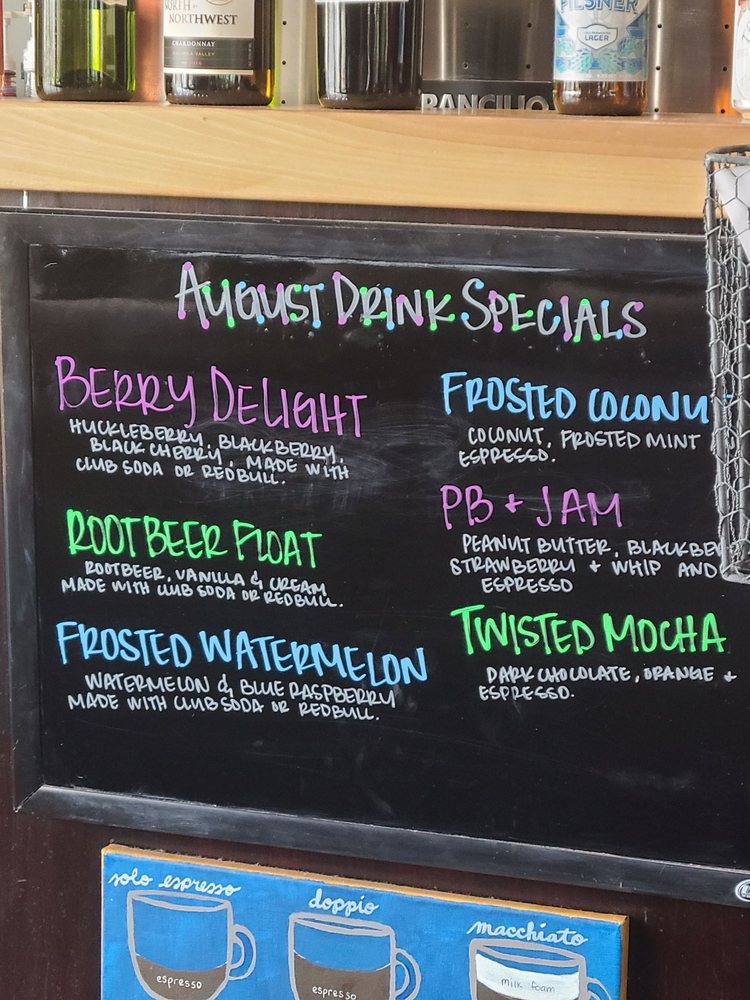 NORTH BY
NORTHWEST
CHARDONNAY
PILSNER
LAGER
RANCILIO
AUGUST DRINK SPECIALS
BERRY DELIGHT
HUCKLEBERRY, BLACKBERRY,
BLACK CHERRY, MADE WITH
CLUB SODA OR REDBULL.
ROOTBEER FLOAT
ROOTBEER, VANILLA & CREAM
MADE WITH CLUB SODA OR REDBULL.
FROSTED WATERMELON
WATERMELON & BLUE RASPBERRY
MADE WITH CLUB SODA OR REDBULL.
FROSTED COCONU
COCONUT, FROSTED MINT
ESPRESSO.
PB + JAM
PEANUT BUTTER, BLACKBE
STRAWBERRY + WHIP AND
ESPRESSO
TWISTED MOCHA
DARK CHOCOLATE, ORANGE +
ESPRESSO.
solo espresso
espresso
doppio
espresso
macchiato
milk foam